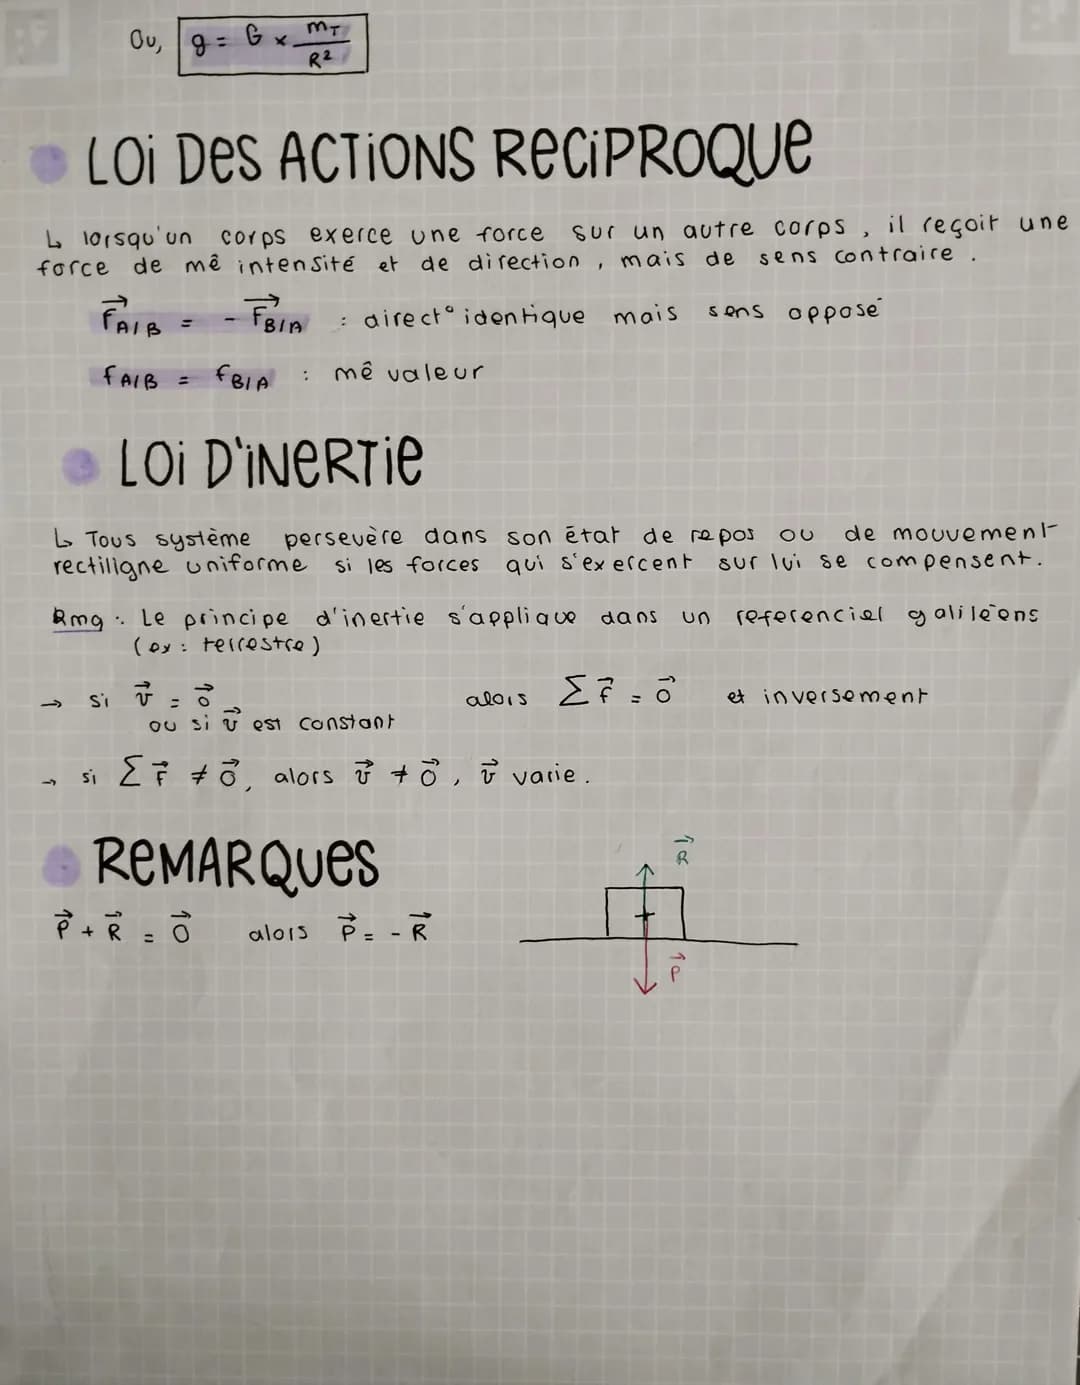 Ou, g = G × mT / R²
LOi DES ACTiONS RECiPROQUE
↳ lorsqu'un corps exerce une force sur un autre corps, il reçoit une
force de mê intensité et de direction, mais de sens contraire.
F⃗A/B = - F⃗B/A : direct° identique mais sens opposé
fA/B = fB/A : mê valeur
LOi D'iNERTiE
↳ Tous système persevère dans son état de repos ou de mouvement
rectiligne uniforme si les forces qui s'exercent sur lui se compensent.
Rmq : Le principe d'inertie s'applique dans un referenciel galiléens
(ex : terrestre)
→ si v⃗ = 0⃗ alors Σ F⃗ = 0⃗ et inversement
ou si v⃗ est constant
→ si Σ F⃗ ≠ 0⃗, alors v⃗ ≠ 0⃗, v⃗ varie.
REMARQUES
P⃗ + R⃗ = 0⃗ alors P⃗ = - R⃗
R⃗
P⃗